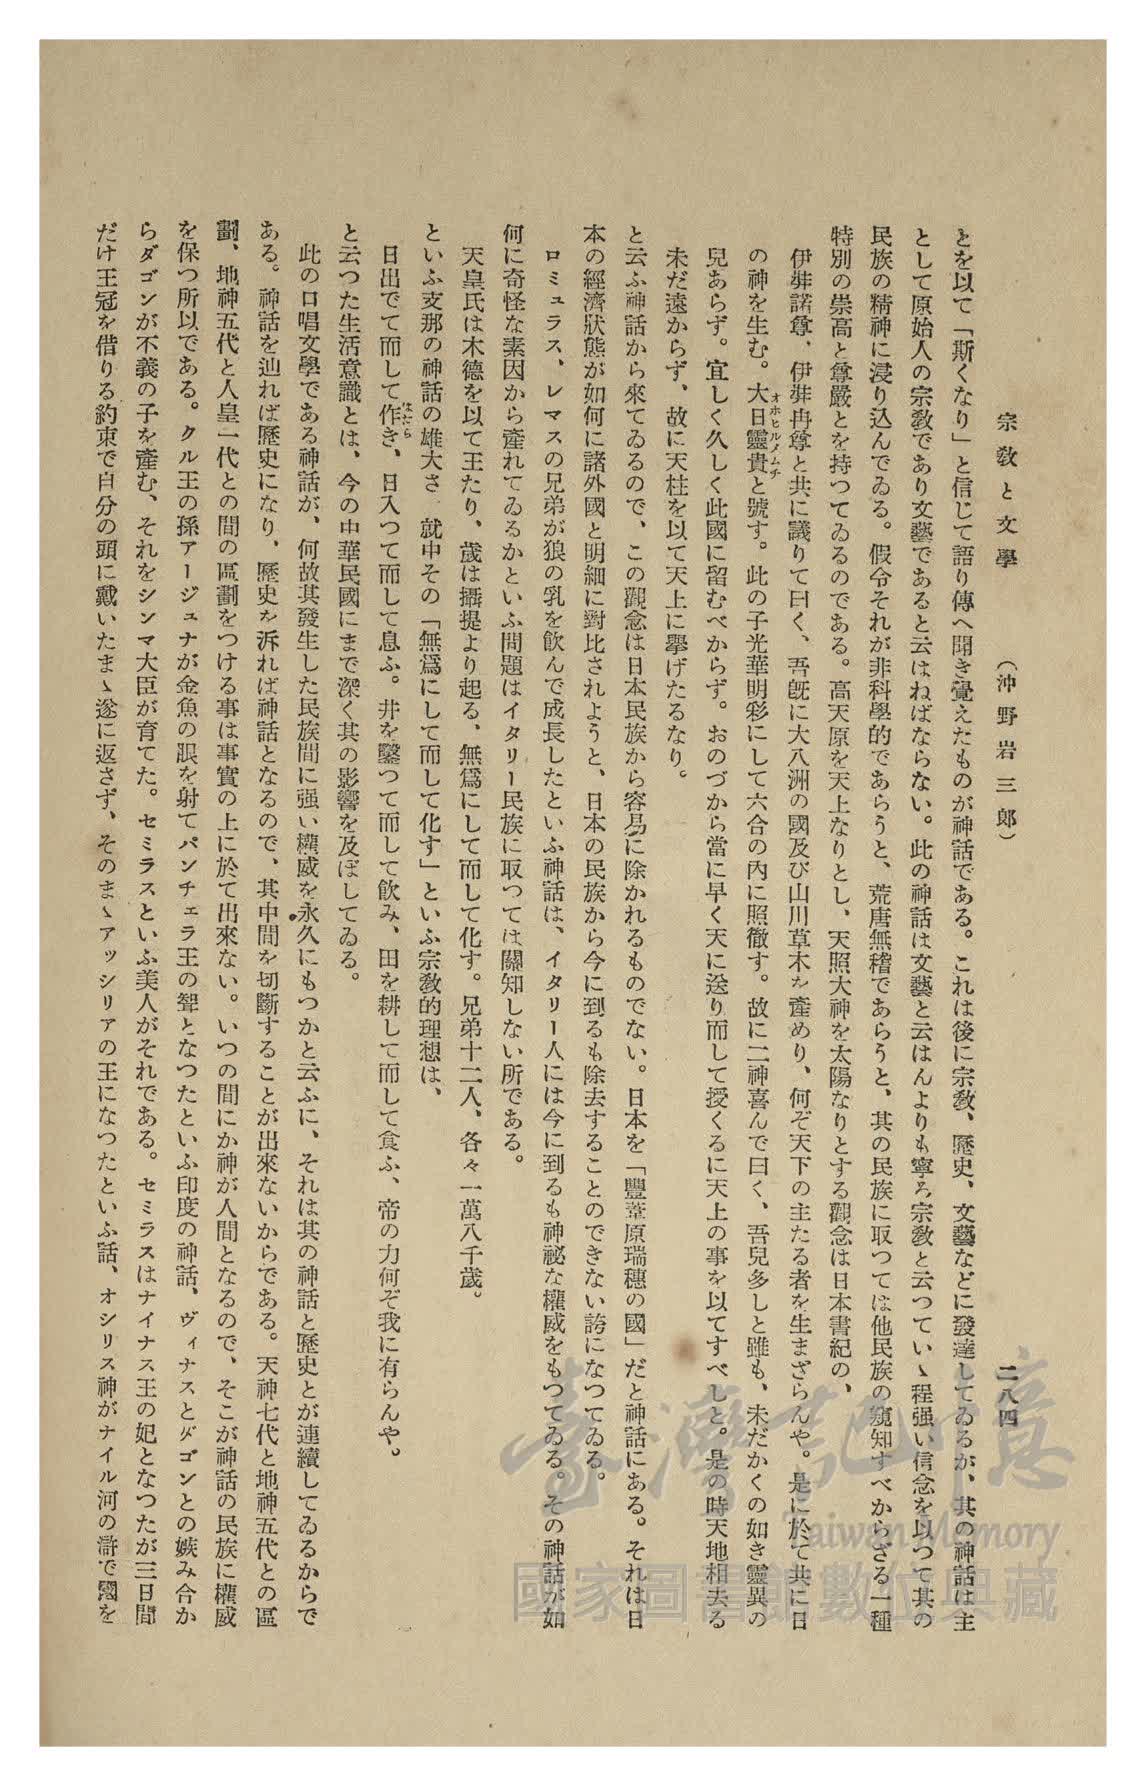 宗教と文學　（沖野岩三郎）　二八四
とを以て「斯くなり」と信じて語り傳へ聞き覺えたものが神話である。これは後に宗教、歷史、文藝などに發達してゐるが、其の神話は主
として原始人の宗教であり文藝であると云はねばならない。此の神話は文藝と云はんよりも寧ろ宗教と云つていゝ程强い信念を以つて其の
民族の精神に浸り込んでゐる。假令それが非科學的であらうと、荒唐無稽であらうと、其の民族に取つては他民族の窺知すべからざる一種
特別の崇高と尊嚴とを持つてゐるのである。高天原を天上なりとし、天照大神を太陽なりとする觀念は日本書紀の、
伊弉諾尊、伊弉冉尊と共に議りて曰く、吾旣に大八洲の國及び山川草木を產めり、何ぞ天下の主たる者を生まざらんや。是に於て共に日
の神を生む。大日靈貴と號す。此の子光華明彩にして六合の內に照徹す。故に二神喜んで曰く、吾兒多しと雖も、未だかくの如き靈異の
オホヒルメムチ
兒あらず。宜しく久しく此國に留むべからず。おのづから當に早く天に送り而して授くるに天上の事を以てすべしと。是の時天地相去る
未だ遠からず、故に天柱を以て天上に擧げたるなり。
と云ふ神話から來てゐるので、この觀念は日本民族から容易に除かれるものでない。日本を「豐葦原瑞穗の國」だと神話にある。それは日
本の經濟狀態が如何に諸外國と明細に對比されようと、日本の民族から今に到るも除去することのできない誇になつてゐる。
ロミュラス、レマスの兄弟が狼の乳を飮んで成長したといふ神話は、イタリー人には今に到るも神祕な權威をもつてゐる。その神話が如
何に奇怪な素因から產れてゐるかといふ問題はイタリー民族に取つては關知しない所である。
天皇氏は木德を以て王たり、歲は攝提より起る、無爲にして而して化す。兄弟十二人、各々一萬八千歲。
といふ支那の神話の雄大さ、就中その「無爲にして而して化す」といふ宗教的理想は、
日出でて而して作き、日入つて而して息ふ。井を鑿つて而して飮み、田を耕して而して食ふ、帝の力何ぞ我に有らんや。
はたら
と云つた生活意識とは、今の中華民國にまで深く其の影響を及ぼしてゐる。
此の口唱文學である神話が、何故其發生した民族間に强い權威を永久にもつかと云ふに、それは其の神話と歷史とが連續してゐるからで
ある。神話を辿れば歷史になり、歷史を泝れば神話となるので、其中間を切斷することが出來ないからである。天神七代と地神五代との區
劃、地神五代と人皇一代との間の區劃をつける事は事實の上に於て出來ない。いつの間にか神が人間となるので、そこが神話の民族に權威
を保つ所以である。クル王の孫アージュナが金魚の眼を射てパンチェラ王の聟となつたといふ印度の神話、ヴィナスとダゴンとの嫉み合か
らダゴンが不義の子を產む、それをシンマ大臣が育てた。セミラスといふ美人がそれである。セミラスはナイナス王の妃となつたが三日間
だけ王冠を借りる約束で自分の頭に戴いたまゝ遂に返さず、そのまゝアッシリアの王になつたといふ話、オシリス神がナイル河の滸で國を
臺灣記憶
Taiwan Memory
國家圖書館數位典藏